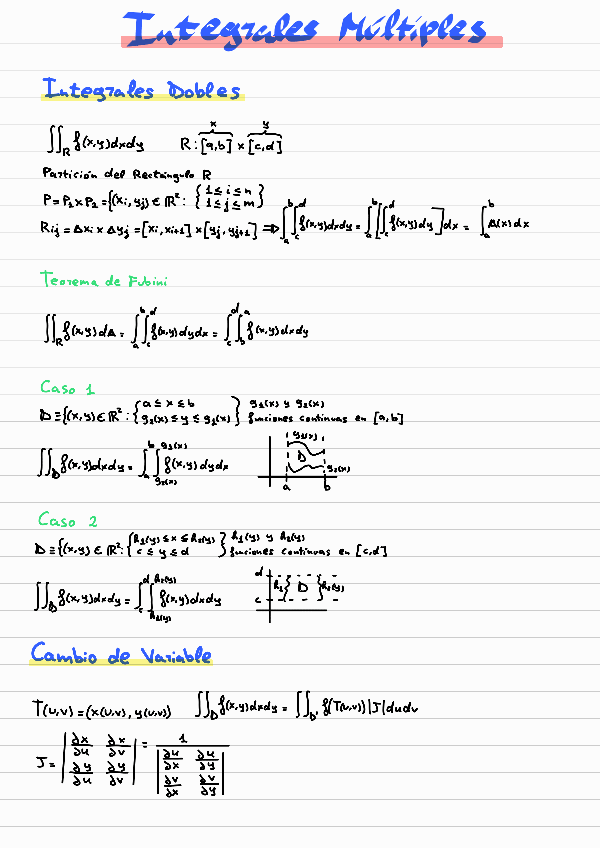 Integrales Múltiples
Integrales Dobles
∬_R f(x,y)dxdy R: [a,b] × [c,d]
x y
Partición del Rectángulo R
P = P₁×P₂ = {(xi, yj) ∈ ℝ²: {1 ≤ i ≤ n
1 ≤ j ≤ m}
Rij = Δxi × Δyj = [xi, xi+1] × [yj, yj+1] ⇒ ∫_a^b ∫_c^d f(x,y)dxdy = ∫_a^b [∫_c^d f(x,y)dy] dx = ∫_a^b A(x)dx
Teorema de Fubini
∬_R f(x,y)dA = ∫_a^b ∫_c^d f(x,y)dydx = ∫_c^d ∫_b^a f(x,y)dxdy
Caso 1
D ≡ {(x,y) ∈ ℝ²: {a ≤ x ≤ b
g₂(x) ≤ y ≤ g₁(x)} g₁(x) y g₂(x)
funciones continuas en [a,b]
∬_D f(x,y)dxdy = ∫_a^b ∫_{g₂(x)}^{g₁(x)} f(x,y)dydx
g₁(x)
D
g₂(x)
a b
Caso 2
D ≡ {(x,y) ∈ ℝ²: {h₁(y) ≤ x ≤ h₂(y)
c ≤ y ≤ d} h₁(y) y h₂(y)
funciones continuas en [c,d]
∬_D f(x,y)dxdy = ∫_c^d ∫_{h₁(y)}^{h₂(y)} f(x,y)dxdy
d
h₁ D h₂(y)
c
Cambio de Variable
T(u,v) = (x(u,v), y(u,v)) ∬_D f(x,y)dxdy = ∬_D' f(T(u,v))|J|dudv
J = |∂x/∂u ∂x/∂v; ∂y/∂u ∂y/∂v| = 1 / |∂u/∂x ∂u/∂y; ∂v/∂x ∂v/∂y|